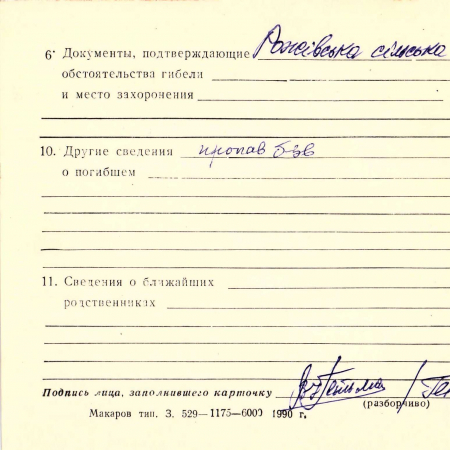 6. Документы, подтверждающие сільська
обстоятельства гибели
и место захоронения
10. Другие сведения пропав б/в
о погибшем
11. Сведения о ближайших
родственниках
Подпись лица, заполнившего карточку
(разборчиво)
Макаров тип. З. 529—1175—6000 1990 г.